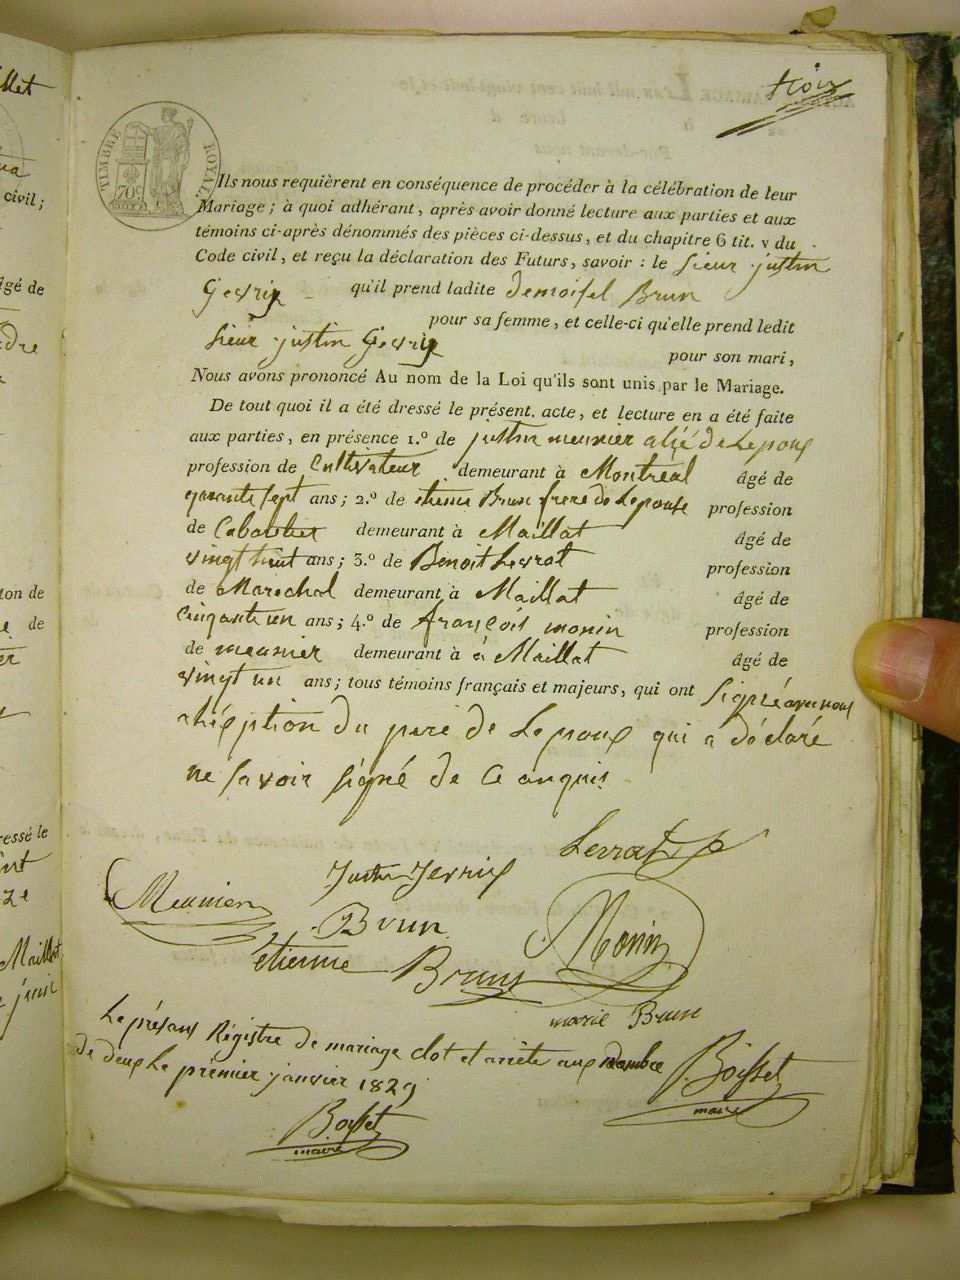 trois
TIMBRE ROYAL
70 c
Ils nous requièrent en conséquence de procéder à la célébration de leur
Mariage ; à quoi adhérant, après avoir donné lecture aux parties et aux
témoins ci-après dénommés des pièces ci-dessus, et du chapitre 6 tit. v du
Code civil, et reçu la déclaration des Futurs, savoir : le Sieur justin
Gevrix qu'il prend ladite demoisel Brun
pour sa femme, et celle-ci qu'elle prend ledit
Sieur justin Gevrix pour son mari,
Nous avons prononcé Au nom de la Loi qu'ils sont unis par le Mariage.
De tout quoi il a été dressé le présent acte, et lecture en a été faite
aux parties, en présence 1.º de justin meunier alié de Lepoux
profession de Cultivateur demeurant à Montreal âgé de
quarante sept ans ; 2.º de etienne Brun frere de Lepouse profession
de Cabaretier demeurant à Maillat âgé de
vingt huit ans ; 3.º de Benoit Levrat profession
de Marechal demeurant à Maillat âgé de
Cinqante un ans ; 4.º de françois monin profession
de meunier demeurant à à Maillat âgé de
vingt un ans ; tous témoins français et majeurs, qui ont signé avec nous
a léxception du pere de Lepoux qui a déclaré
ne savoir signé de ce anquis
Levrat
Justin Jevrix
Meunier
Brun
Monin
etienne Brun
marie Brun
Le présans Régistre de mariage clot et arrete aux nombre
de deux Le prémier janvier 1829
Boisset
maire
Boisset
maire